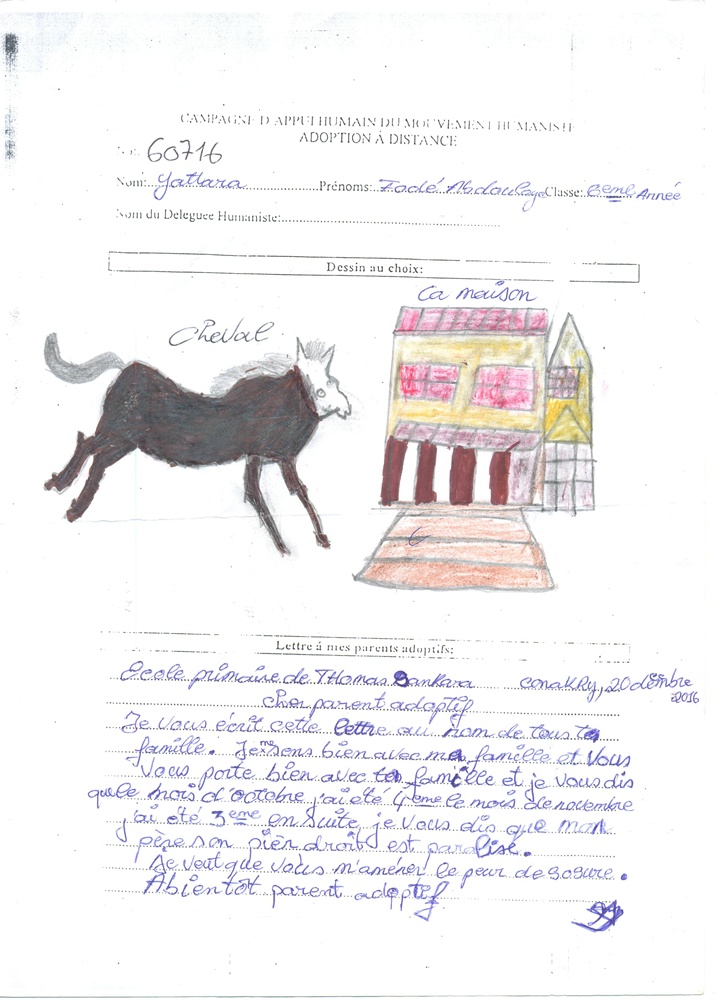 CAMPAGNE D'APPUI HUMAIN DU MOUVEMENT HUMANISTE
ADOPTION À DISTANCE
No: 60716
Nom: Yattara Prénoms: Fodé Abdoulaye Classe: 6ème Année
Nom du Deleguee Humaniste:
Dessin au choix:
Ca maison
Cheval
Lettre á mes parents adoptifs:
Ecole primaire de THomas Sankara conakRy, 20 désmbre 2016
Cher parent adoptif
Je vous écrit cette lettre au nom de tous ta
famille. Je me sens bien avec ma famille et Vous
Vous porte bien avec ta famille et je vous dis
que le mois d'octobre j'ai été 4ème le mois de novembre
j'ai été 3ème en suite je vous dis que mon
père son pièr droit est paralisé.
Je veut que vous m'améner le peur de
A bientôt parent adoptif